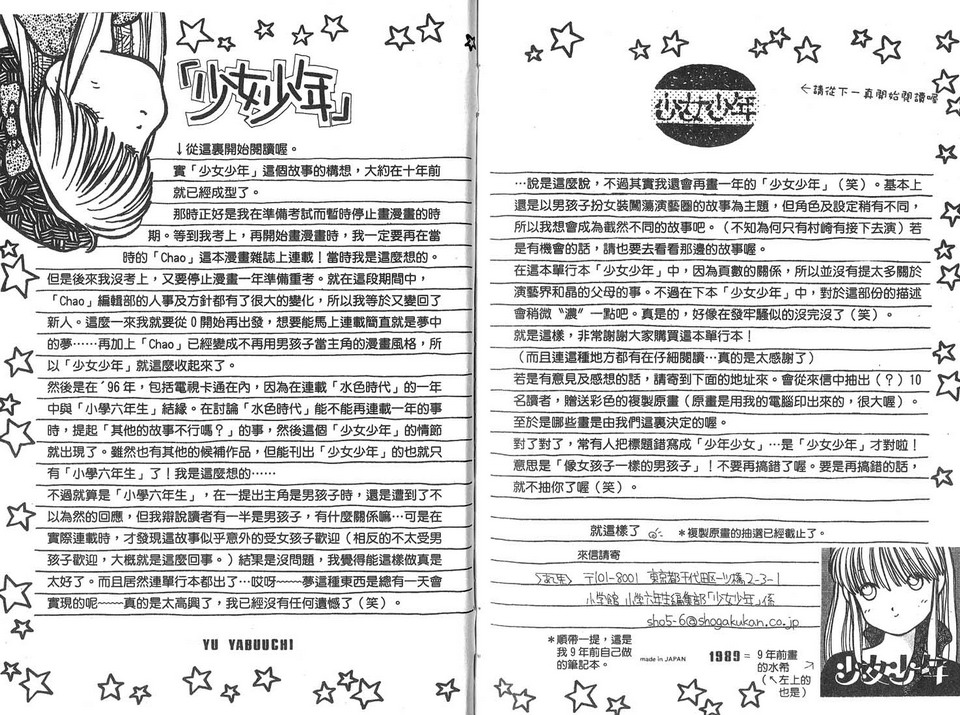 「少女少年」
↓從這裏開始閱讀喔。
實「少女少年」這個故事的構想，大約在十年前
就已經成型了。
那時正好是我在準備考試而暫時停止畫漫畫的時
期。等到我考上，再開始畫漫畫時，我一定要再在當
時的「Chao」這本漫畫雜誌上連載！當時我是這麼想的。
但是後來我沒考上，又要停止漫畫一年準備重考。就在這段期間中，
「Chao」編輯部的人事及方針都有了很大的變化，所以我等於又變回了
新人。這麼一來我就要從０開始再出發，想要能馬上連載簡直就是夢中
的夢……再加上「Chao」已經變成不再用男孩子當主角的漫畫風格，所
以「少女少年」就這麼收起來了。
然後是在´96年，包括電視卡通在內，因為在連載「水色時代」的一年
中與「小學六年生」結緣。在討論「水色時代」能不能再連載一年的事
時，提起「其他的故事不行嗎？」的事，然後這個「少女少年」的情節
就出現了。雖然也有其他的候補作品，但能刊出「少女少年」的也就只
有「小學六年生」了！我是這麼想的……
不過就算是「小學六年生」，在一提出主角是男孩子時，還是遭到了不
以為然的回應，但我辯說讀者有一半是男孩子，有什麼關係嘛…可是在
實際連載時，才發現這故事似乎意外的受女孩子歡迎（相反的不太受男
孩子歡迎，大概就是這麼回事。）結果是沒問題，我覺得能這樣做真是
太好了。而且居然連單行本都出了…哎呀~~~夢這種東西是總有一天會
實現的呢~~~真的是太高興了，我已經沒有任何遺憾了（笑）。
YU YABUUCHI
少女少年
←請從下一頁開始閱讀喔
…說是這麼說，不過其實我還會再畫一年的「少女少年」（笑）。基本上
還是以男孩子扮女裝闖蕩演藝器的故事為主題，但角色及設定稍有不同，
所以我想會成為截然不同的故事吧。（不知為何只有村崎有接下去演）若
是有機會的話，請也要去看看那邊的故事喔。
在這本單行本「少女少年」中，因為頁數的關係，所以並沒有提太多關於
演藝界和晶的父母的事。不過在下本「少女少年」中，對於這部份的描述
會稍微〝濃〞一點吧。真是的，好像在發牢騷似的沒完沒了（笑）。
就是這樣，非常謝謝大家購買這本單行本！
（而且連這種地方都有在仔細閱讀…真的是太感謝了）
若是有意見及感想的話，請寄到下面的地址來。會從來信中抽出（？）10
名讀者，贈送彩色的複製原畫（原畫是用我的電腦印出來的，很大喔）。
至於是哪些畫是由我們這裏決定的喔。
對了對了，常有人把標題錯寫成「少年少女」…是「少女少年」才對啦！
意思是「像女孩子一樣的男孩子」！不要再搞錯了喔。要是再搞錯的話，
就不抽你了喔（笑）。
就這樣了
＊複製原畫的抽選已經截止了。
來信請寄
〈あて先〉 〒101-8001 東京都千代田区一ツ橋2-3-1
小学館 小学六年生編集部「少女少年」係
sho5-6@shogakukan.co.jp
＊順帶一提，這是
我９年前自己做
的筆記本。
made in JAPAN
1989＝
９年前畫
的水希
（↖左上的
也是）
少女少年